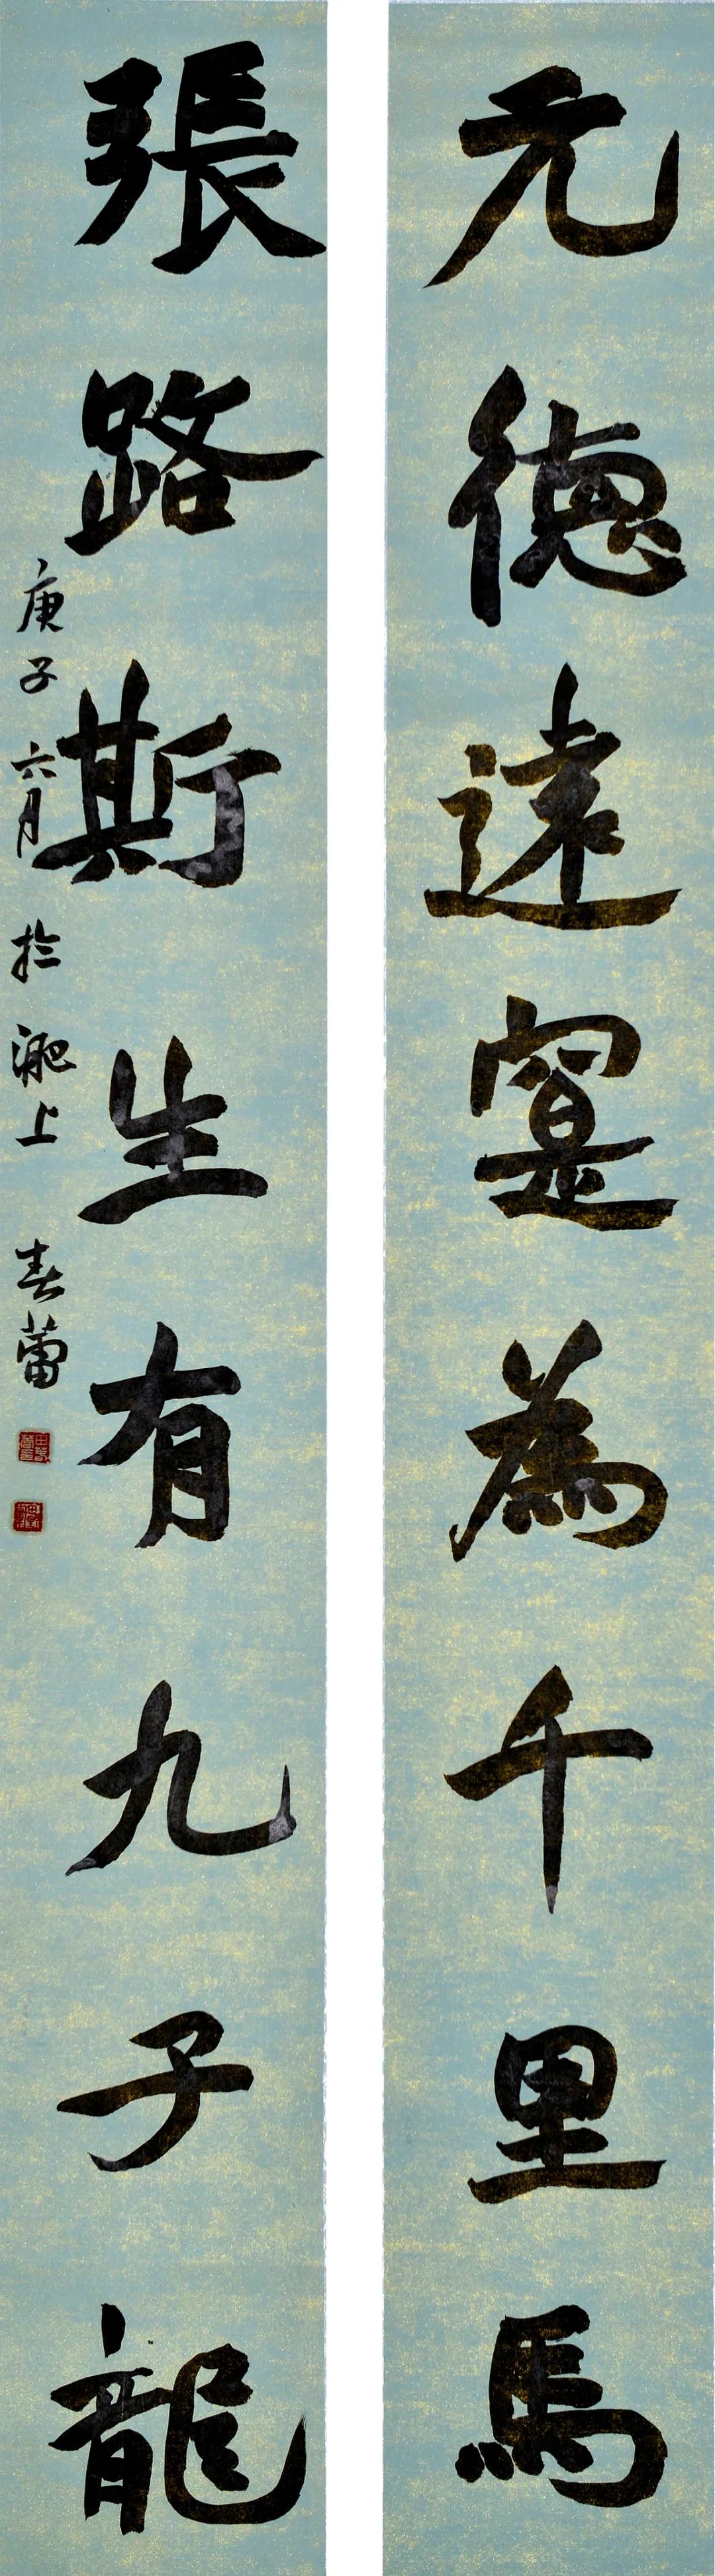 元德遠寔為千里馬
張路斯生有九子龍
庚子六月於淝上春蕾